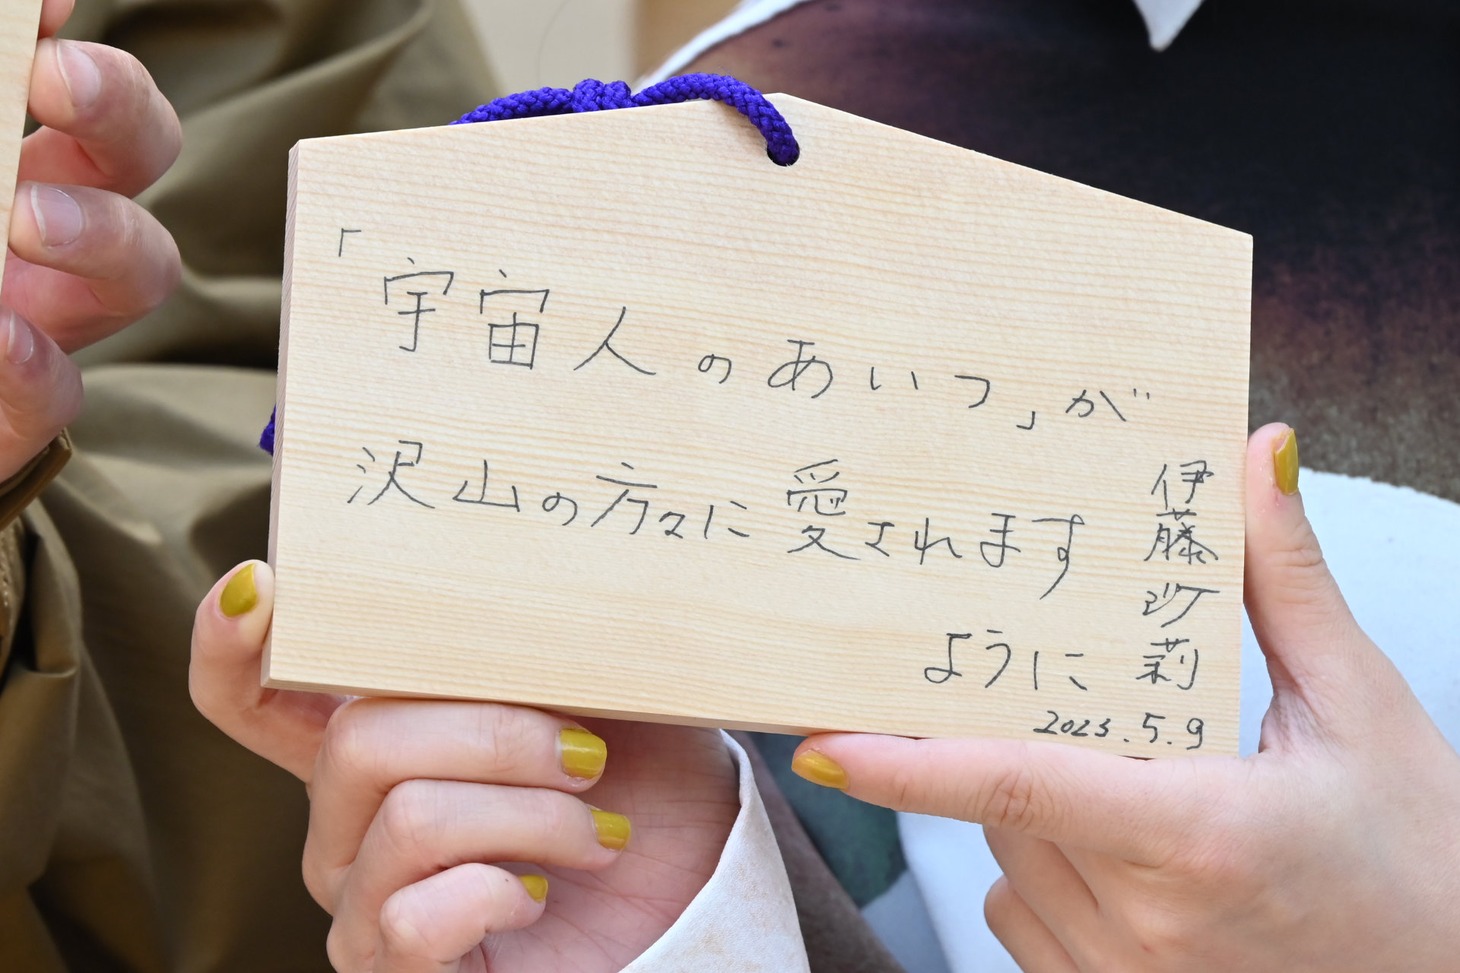 「宇宙人のあいつ」が
沢山の方々に愛されます
ように
伊藤沙莉
2023.5.9